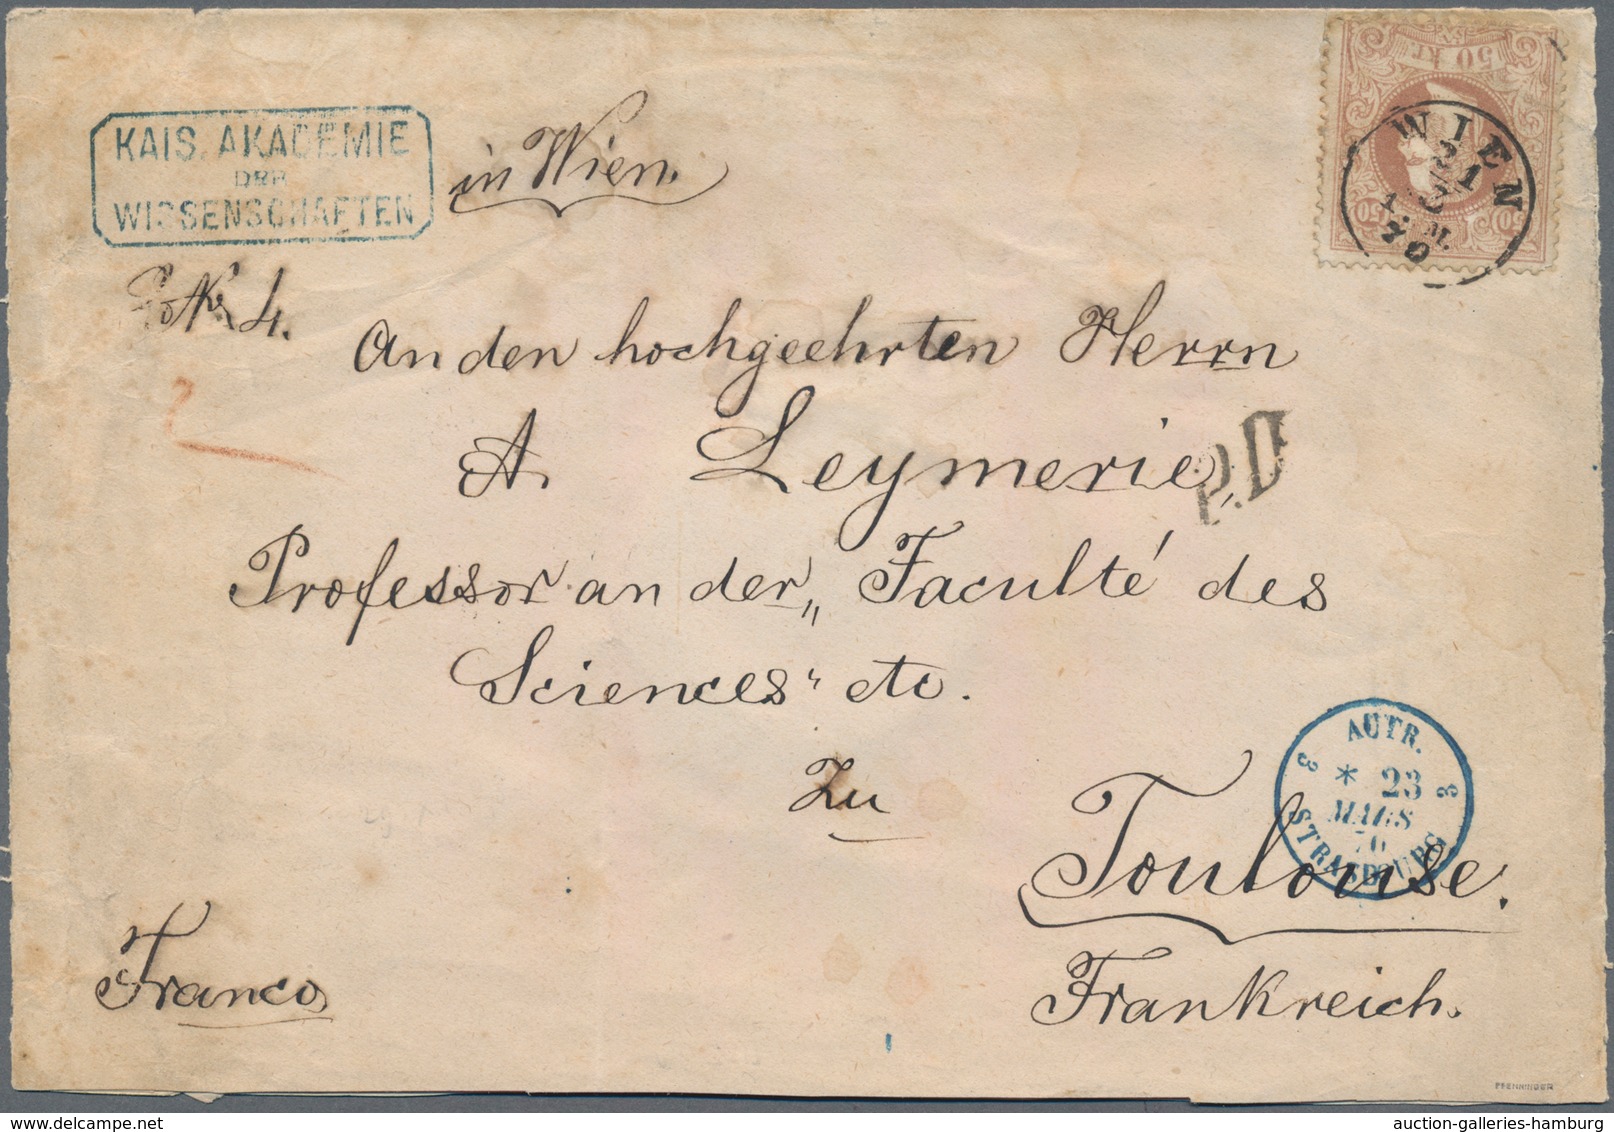 KAIS. AKADEMIE
DER
WISSENSCHAFTEN
in Wien.
4.
50 kr.
50
50
WIEN
21
1.
70
An den hochgeehrten Herrn
A. Leymerie,
P.D
Professor an der „Faculté des
Sciences“ etc.
zu
Toulouse.
Frankreich.
Franco
AUTR.
3 3
* 23
MARS
70
STRASBOURG
PFENNINGER
auction-galleries-hamburg